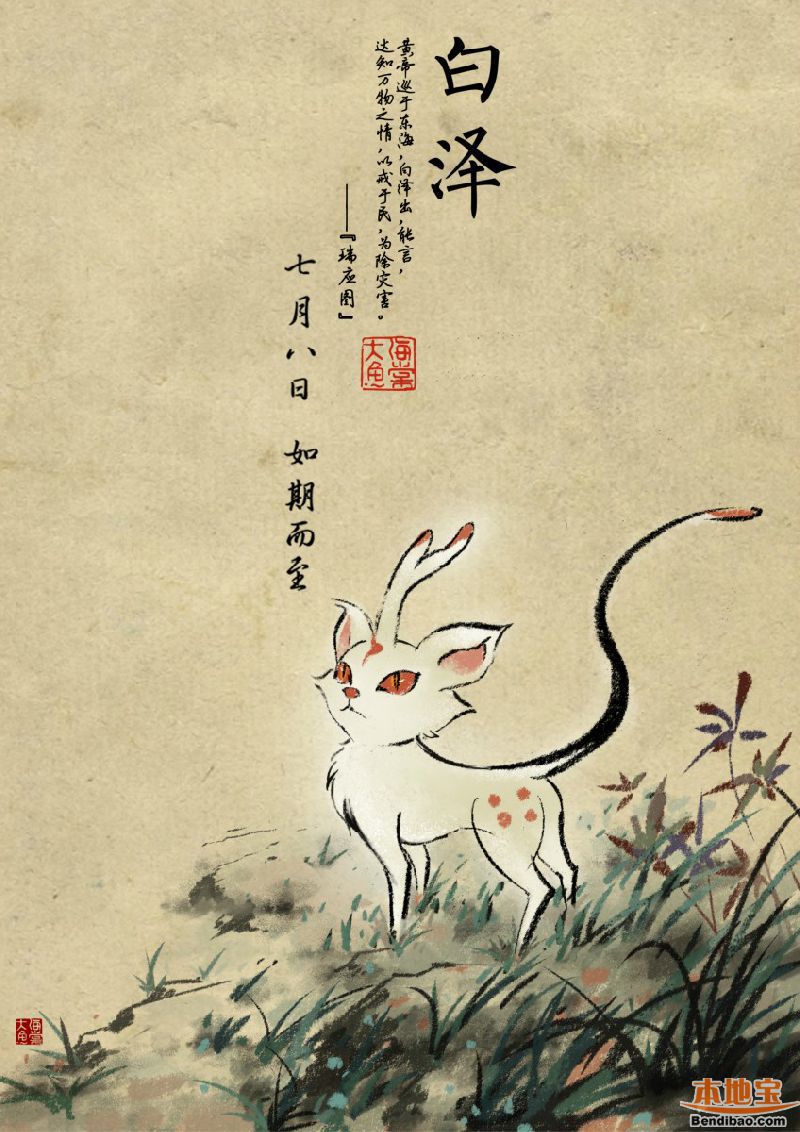 白泽
黄帝巡于东海，白泽出，能言，
达知万物之情，以戒于民，为除灾害。
——『瑞应图』
七月八日 如期而至
大鱼海棠
大鱼海棠
本地宝
Bendibao.com